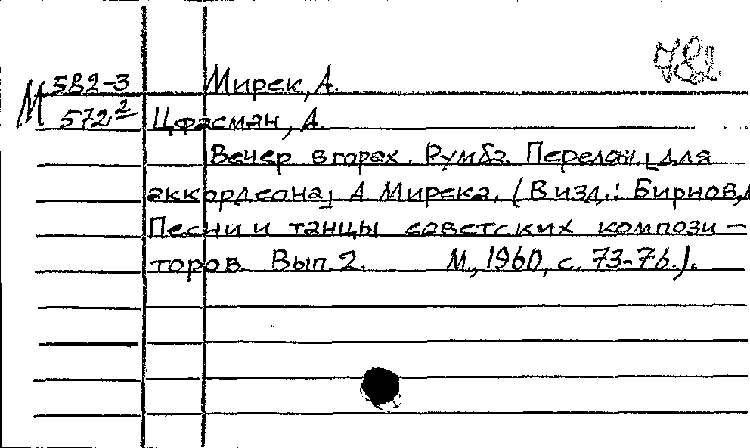 782
М 582-3 Мирек, А.
572² Цфасман, А.
Вечер в горах. Румба. Перелож. [для
аккордеона] А. Мирека. (В изд.: Бирнов,
Песни и танцы советских компози-
торов. Вып. 2. М., 1960, с. 73-76.).